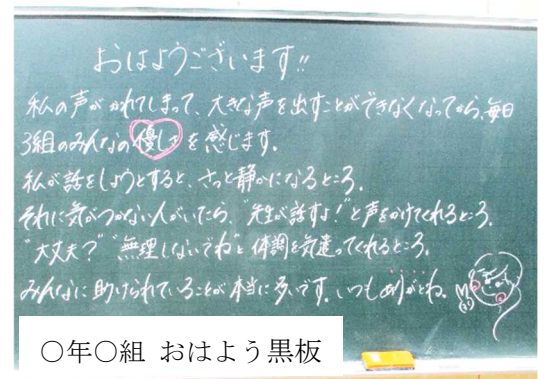 おはようございます!!
私の声がかれてしまって、大きな声を出すことができなくなってから、毎日
3組のみんなの優しさを感じます。
私が話をしようとすると、さっと静かになるところ。
それに気がつかない人がいたら、"先生が話すよ!"と声をかけてくれるところ。
"大丈夫?""無理しないでね"と体調を気遣ってくれるところ。
みんなに助けられていることが本当に多いです。いつもありがとね。
〇年〇組 おはよう黒板